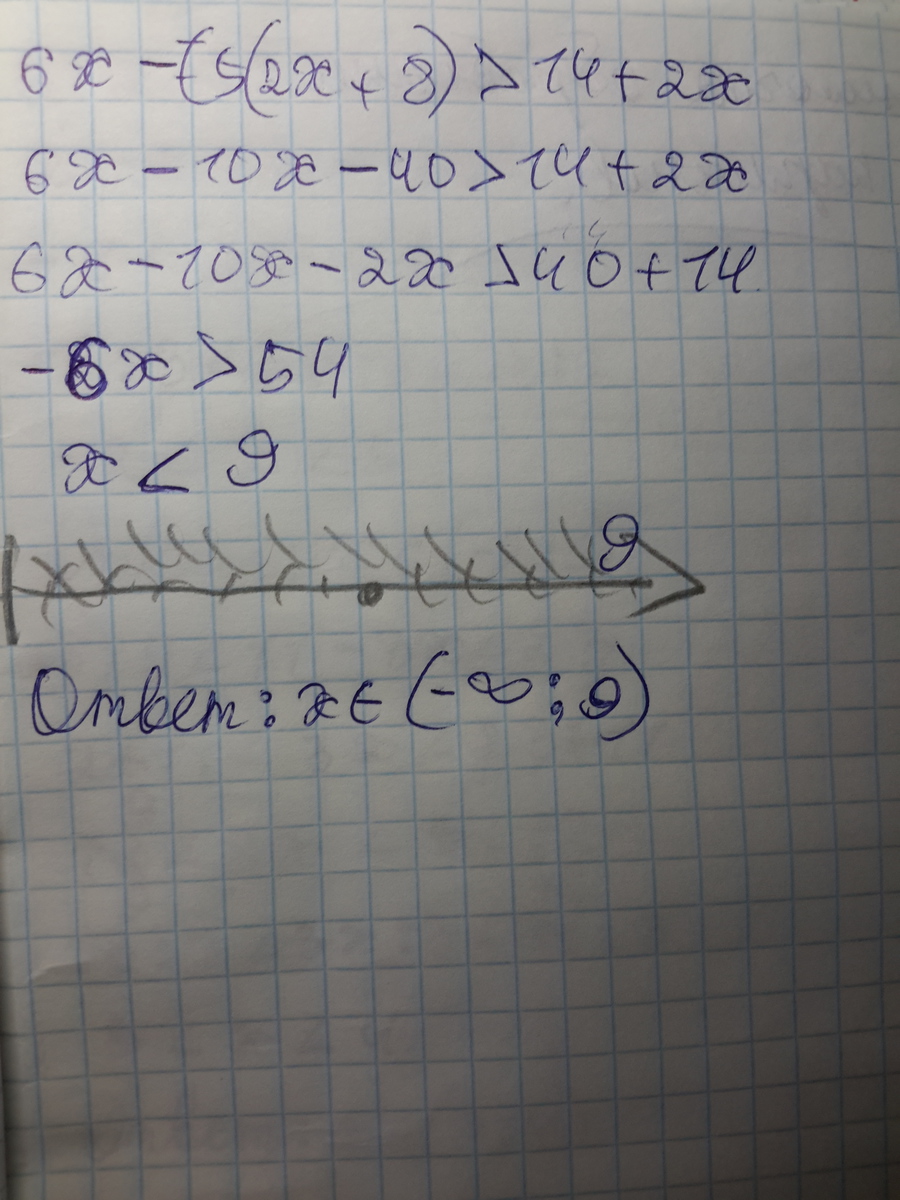 6x - (5(2x + 8) > 14 + 2x
6x - 10x - 40 > 14 + 2x
6x - 10x - 2x > 40 + 14
-6x > 54
x < 9
9
Ответ: x ∈ (-∞; 9)